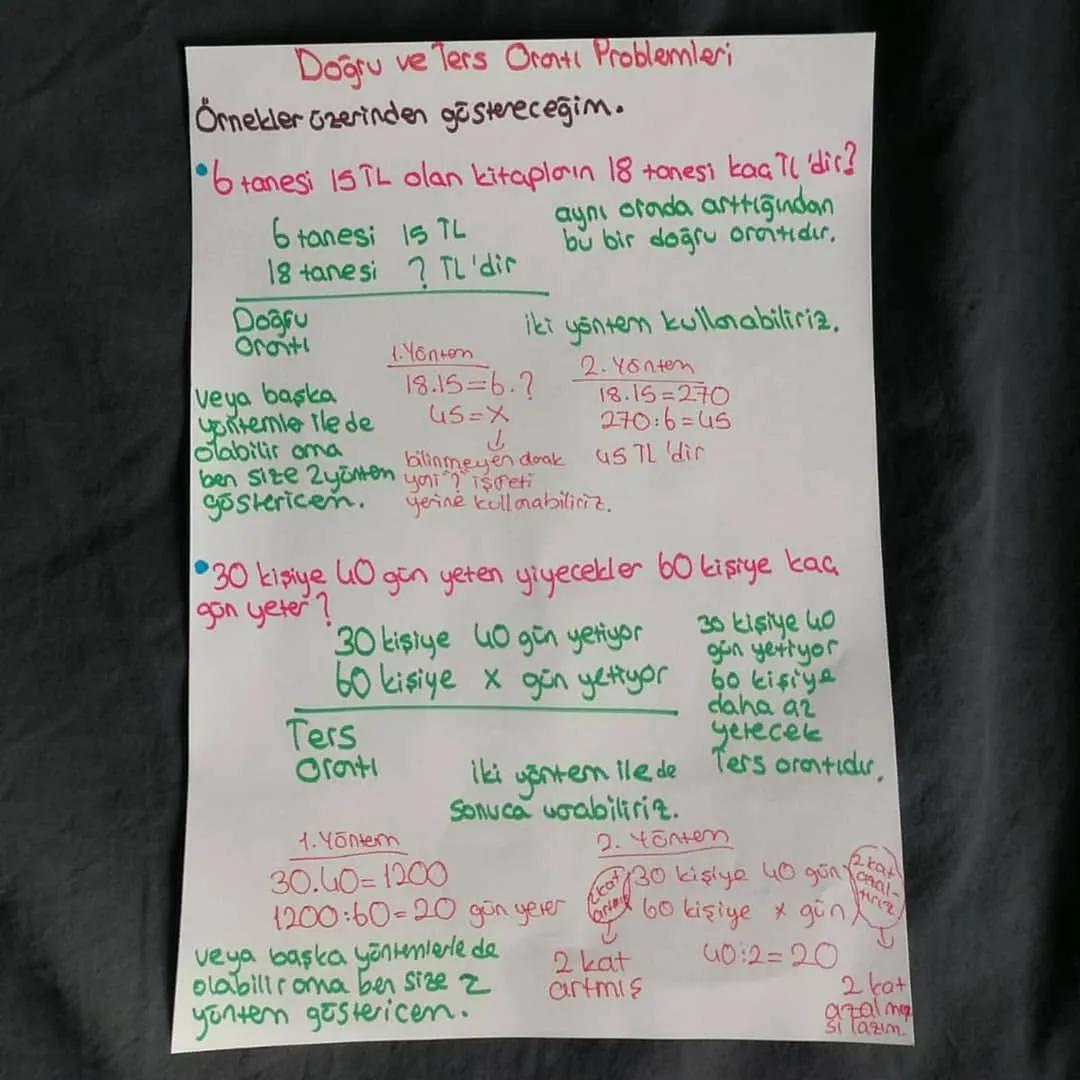 Doğru ve Ters Orantı Problemleri
Örnekler üzerinden göstereceğim.
•6 tanesi 15 TL olan kitapların 18 tanesi kaç TL'dir?
6 tanesi 15 TL
18 tanesi ? TL'dir
aynı oranda arttığından
bu bir doğru orantıdır.
Doğru
Orantı
iki yöntem kullanabiliriz.
1. Yöntem
18.15=6.?
45=X
↓
bilinmeyen olarak
yani "?" işareti
yerine kullanabiliriz.
2. Yöntem
18.15=270
270:6=45
45 TL'dir
veya başka
yöntemler ile de
olabilir ama
ben size 2 yöntem
göstericem.
•30 kişiye 40 gün yeten yiyecekler 60 kişiye kaç
gün yeter?
30 kişiye 40 gün yetiyor
60 kişiye x gün yetiyor
30 kişiye 40
gün yetiyor
60 kişiye
daha az
yetecek
Ters orantıdır.
Ters
Orantı
iki yöntem ile de
sonuca varabiliriz.
1. Yöntem
30.40=1200
1200:60=20 gün yeter
2. Yöntem
2 kat
artmış
30 kişiye 40 gün
60 kişiye x gün
2 kat
azal-
tırız
↓
2 kat
artmış
40:2=20
↓
2 kat
azalma
sı lazım.
veya başka yöntemlerle de
olabilir ama ben size 2
yöntem göstericem.